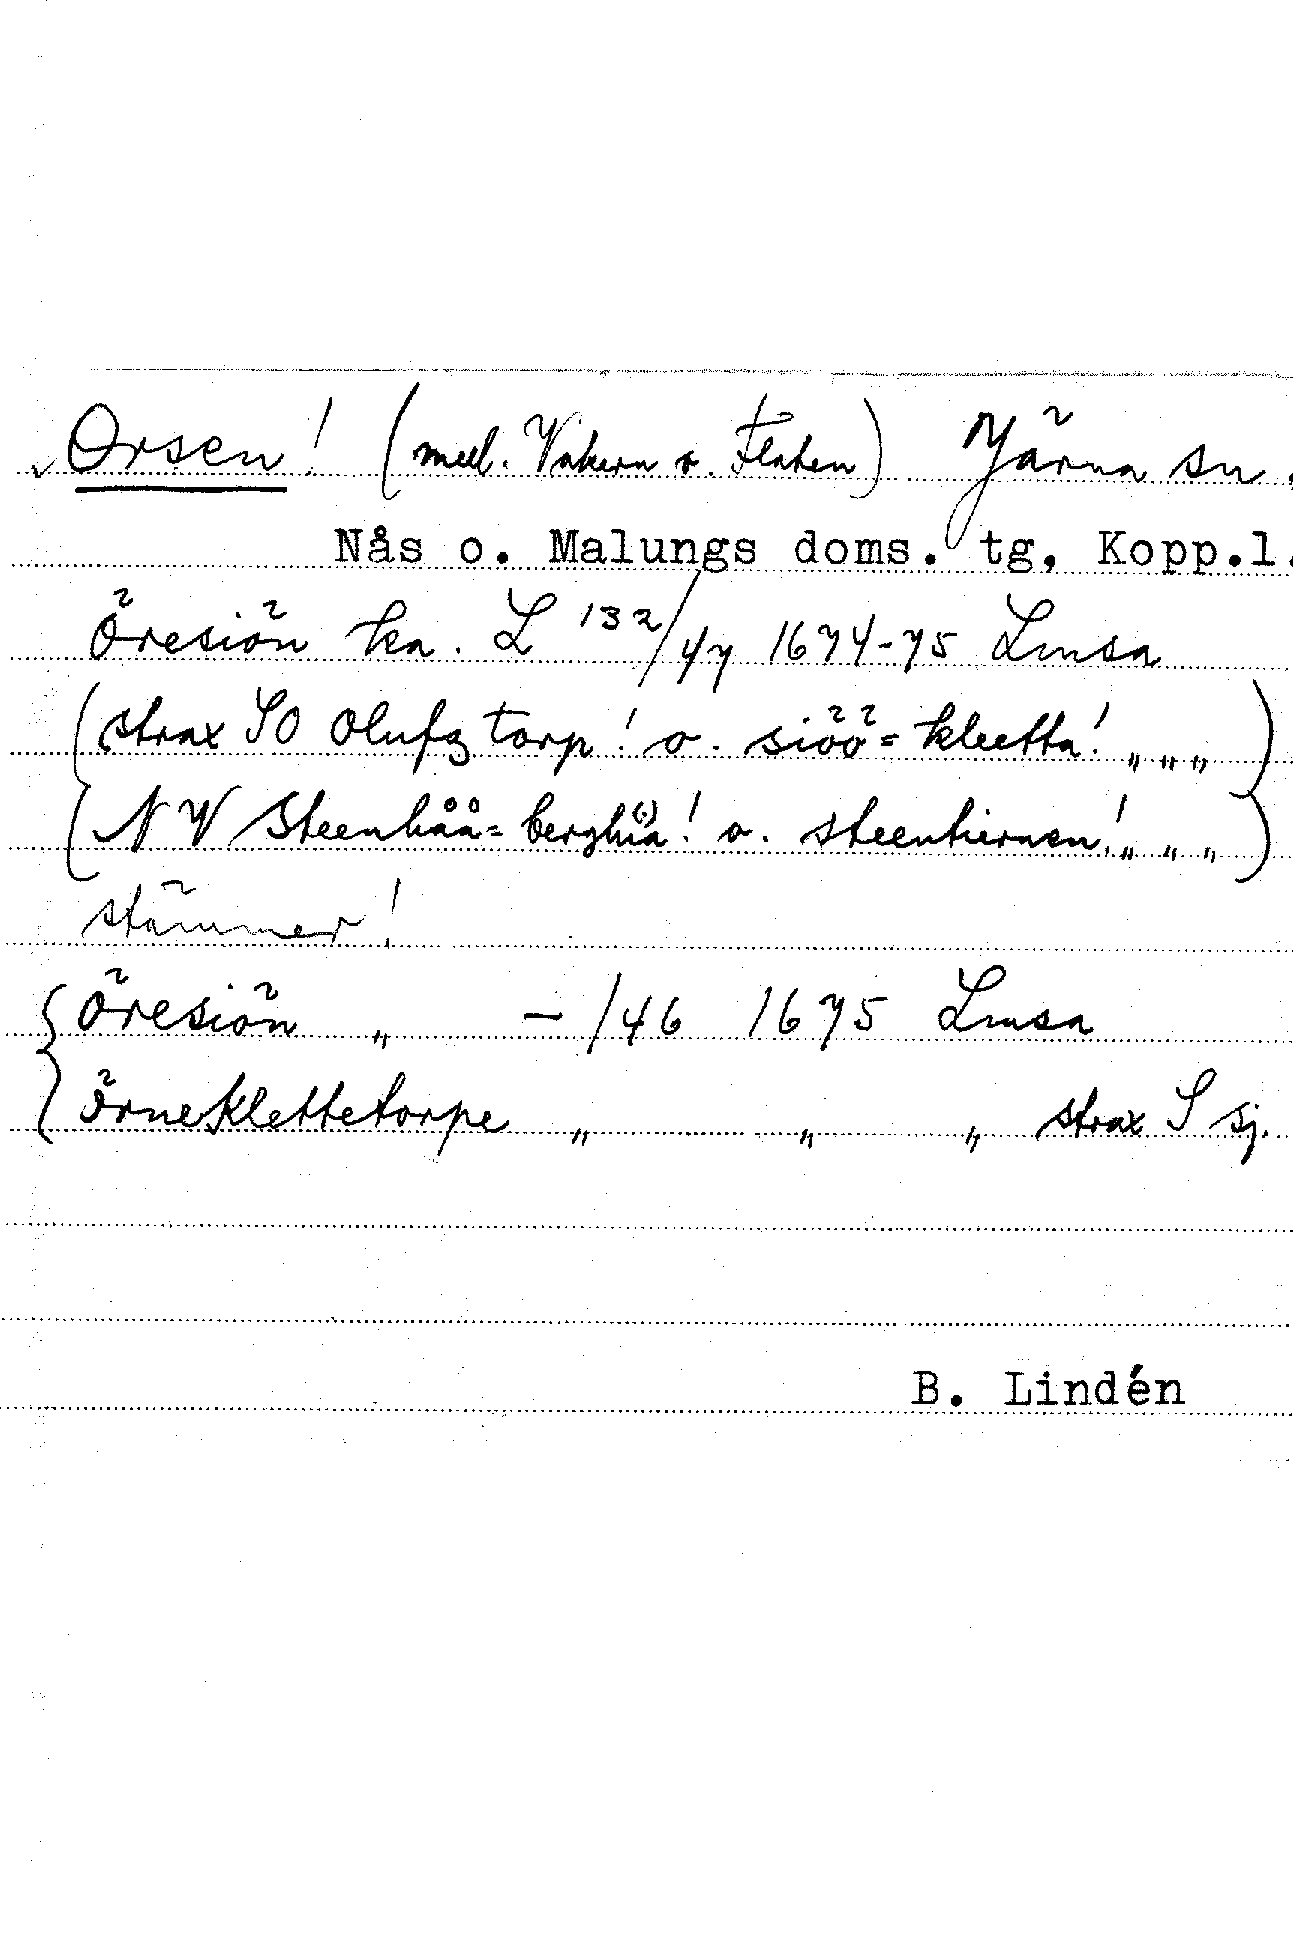 Orsen! (mell. Vakern o. Flaten) Järna sn.
Nås o. Malungs doms. tg, Kopp.l.
Öresiön ka. L 132/47 1674-75 Lmsa
(strax SO Olufz torp! o. siöö= kleetta! „ „ „)
(NV Steenhåå= berghia(!)! o. steentiernen! „ „ „)
stämmer!
Öresiön „ - /46 1675 Lmsa
örneklettetorpe „ „ „ strax S sj.
B. Lindén